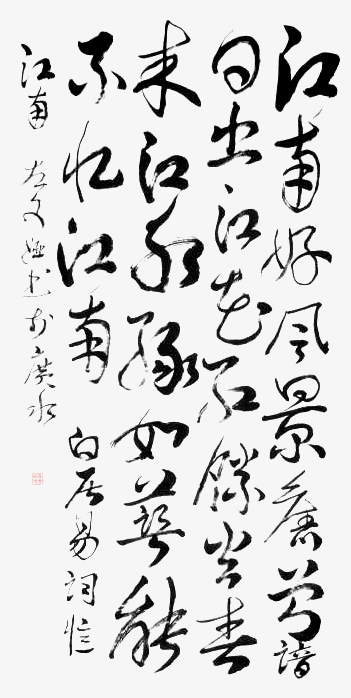 江南好风景舊曾諳
日出江花红勝火春
来江水绿如蓝能
不忆江南 白居易詞忆
江南 左文书于廣水